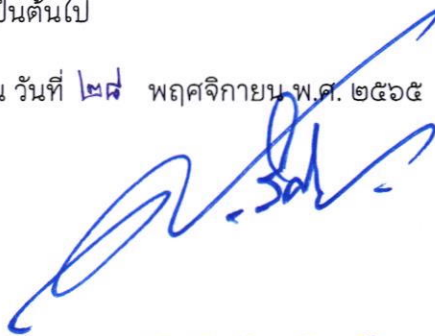 ป็นต้นไป
น วันที่ ๒๘ พฤศจิกายน พ.ศ. ๒๕๖๕